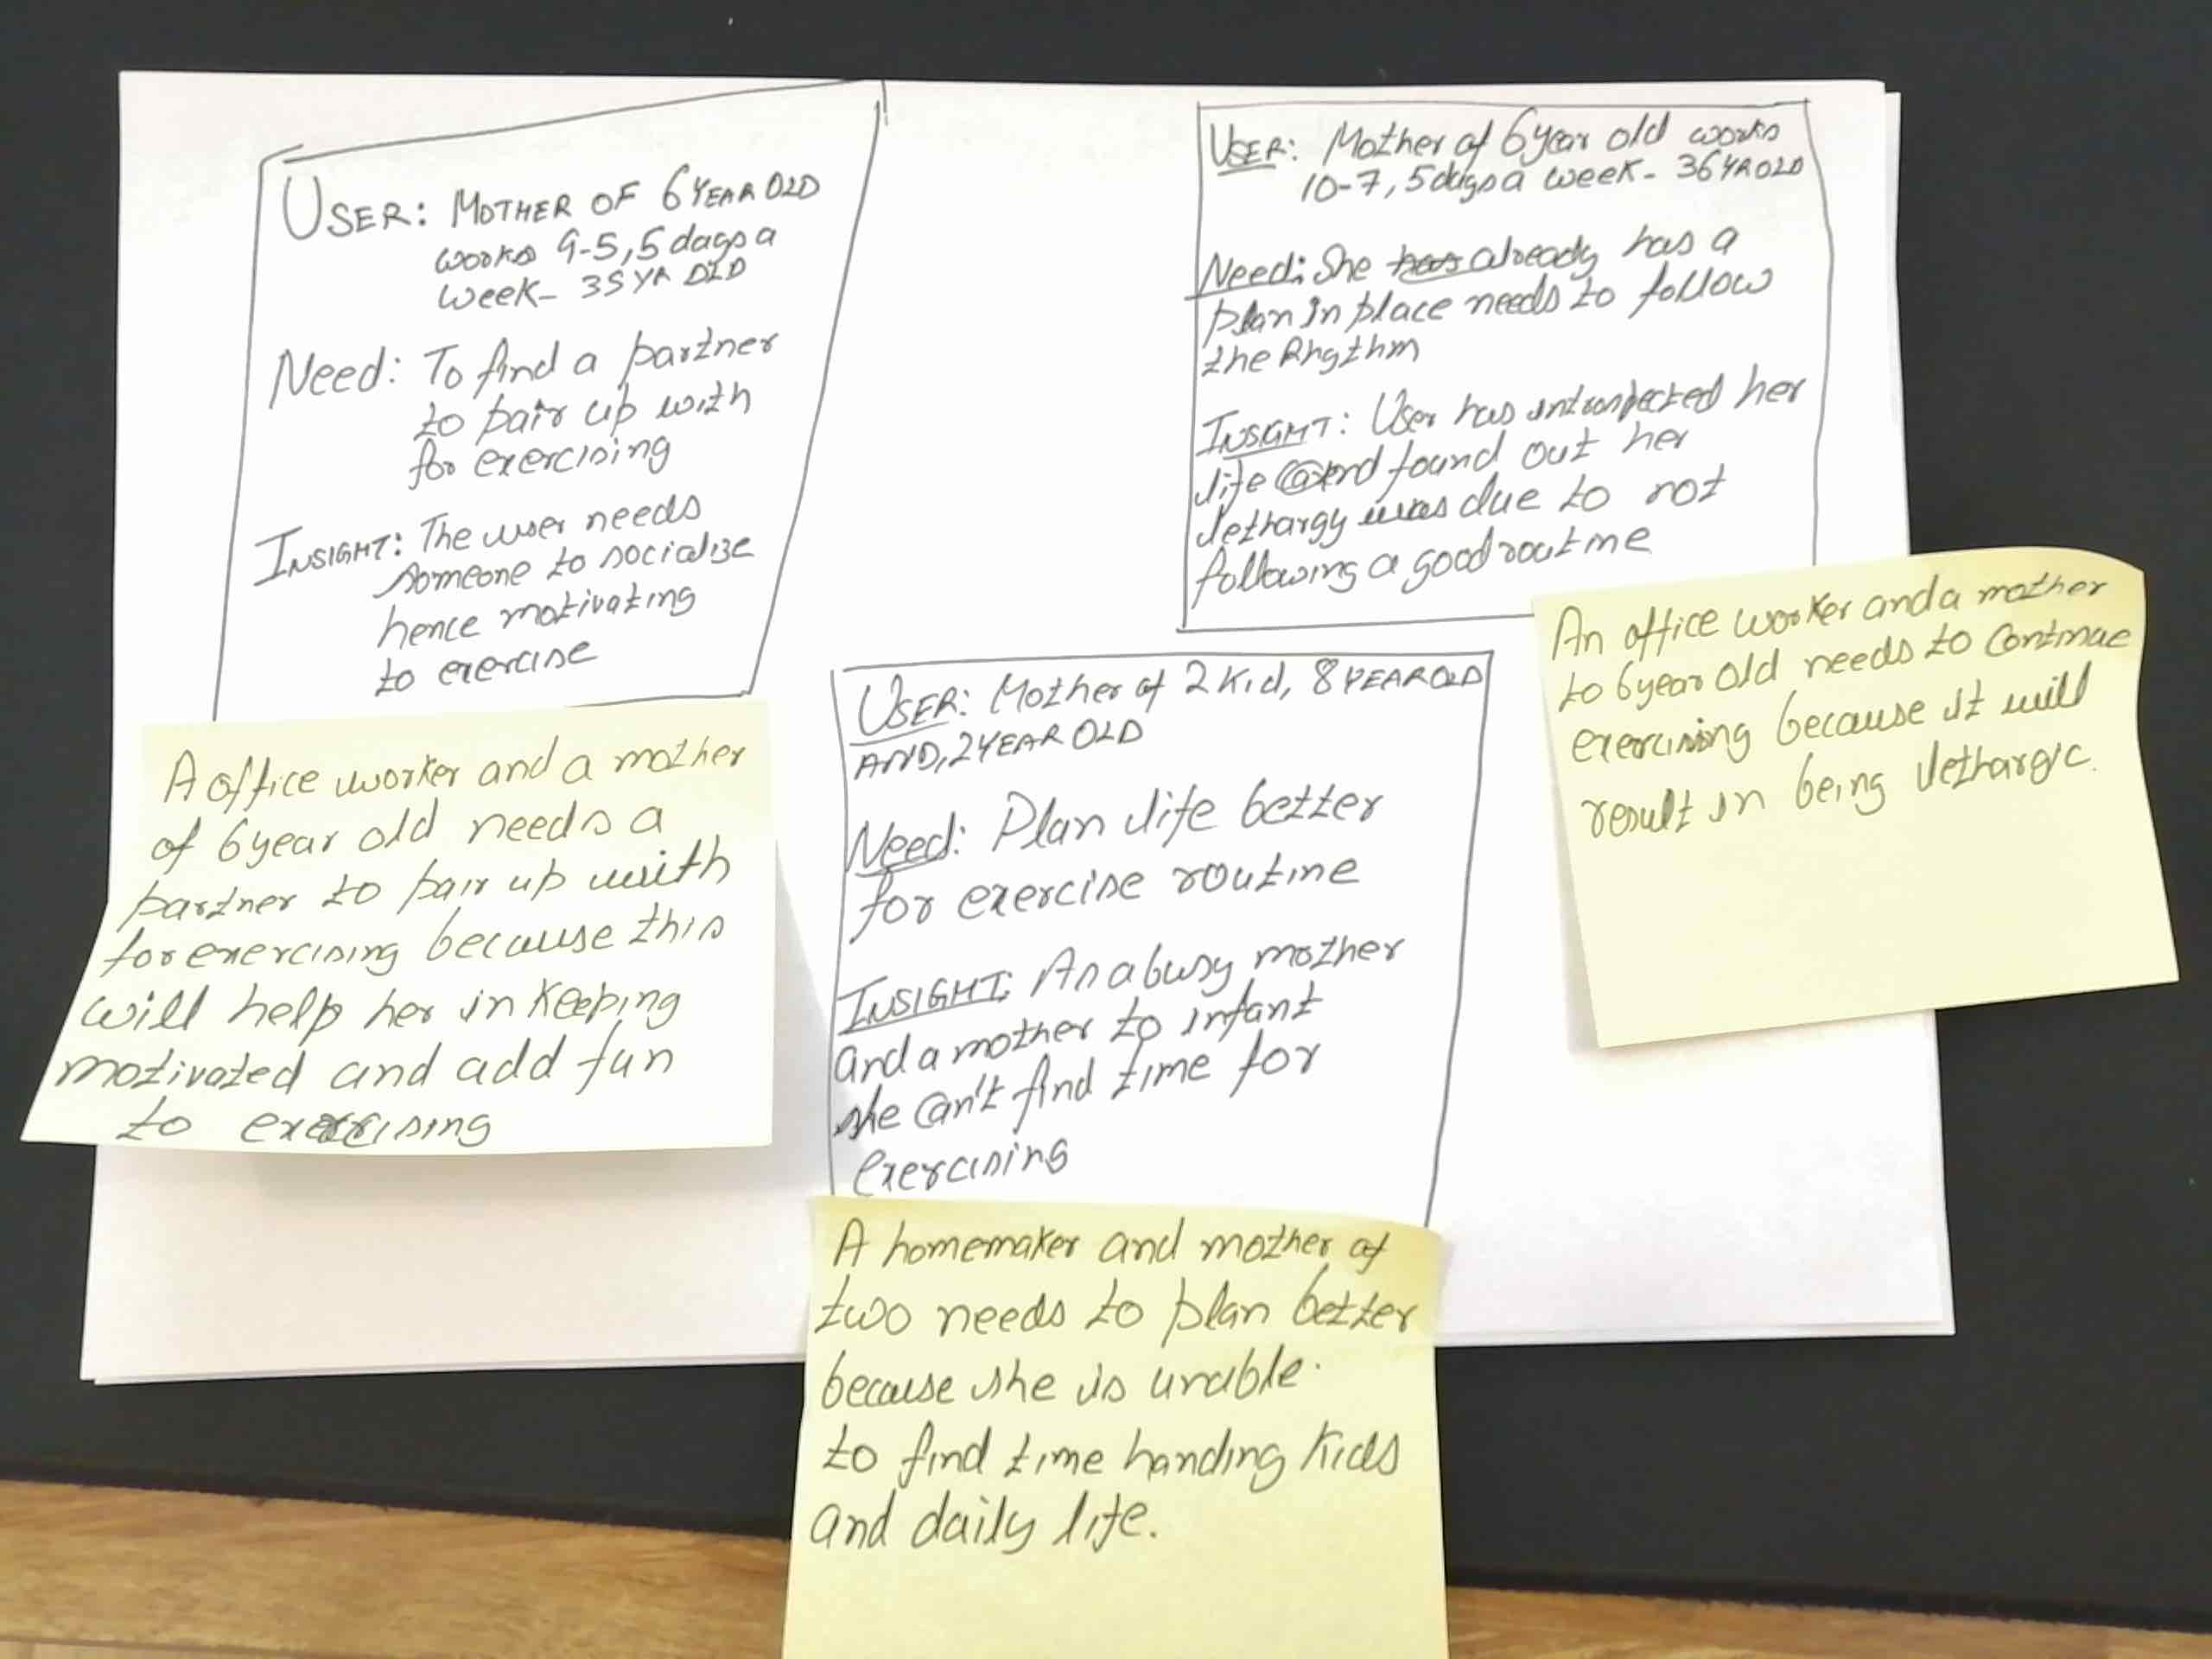 USER: MOTHER OF 6 YEAR OLD
works 9-5, 5 days a
week- 35 YR OLD
Need: To find a partner
to pair up with
for exercising
INSIGHT: The user needs
someone to socialize
hence motivating
to exercise
A office worker and a mother
of 6 year old needs a
partner to pair up with
for exercising because this
will help her in keeping
motivated and add fun
to exercising
USER: Mother of 6 year old works
10-7, 5 days a week- 36 YR OLD
Need: She has already has a
plan in place needs to follow
the Rhythm
INSIGHT: User has introspected her
life and found out her
lethargy was due to not
following a good routine
An office worker and a mother
to 6 year old needs to continue
exercising because it will
result in being lethargic.
USER: Mother of 2 Kid, 8 YEAR OLD
AND, 2 YEAR OLD
Need: Plan life better
for exercise routine
INSIGHT: As a busy mother
and a mother to infant
she can't find time for
exercising
A homemaker and mother of
two needs to plan better
because she is unable
to find time handing kids
and daily life.